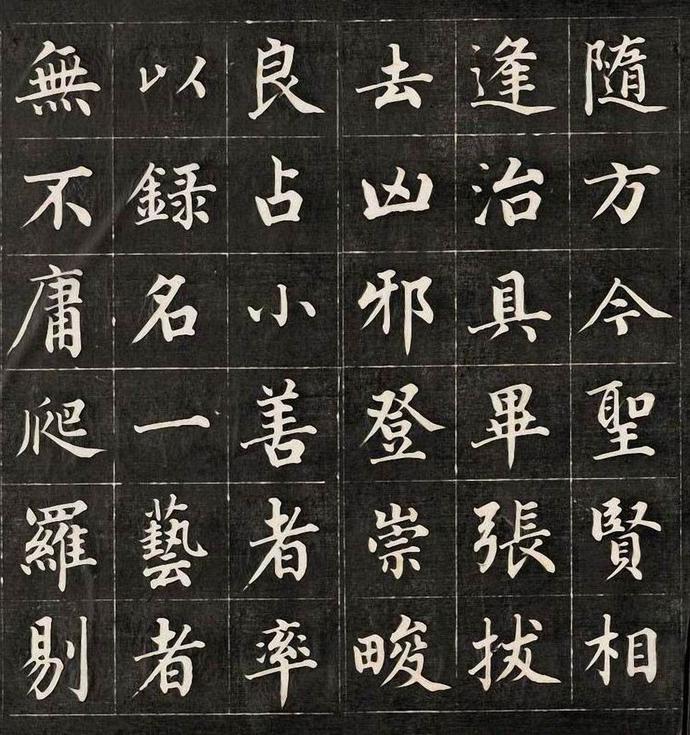 隨方今聖賢相
逢治具畢張拔
去凶邪登崇畯
良占小善者率
以録名一藝者
無不庸爬羅剔